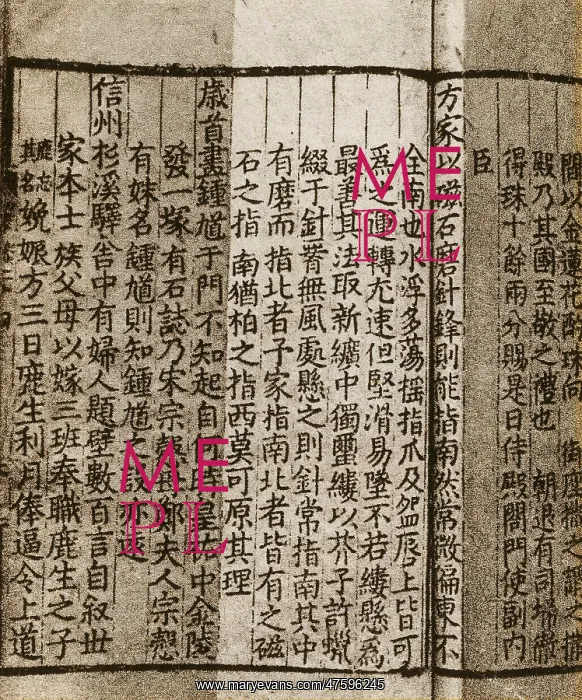 間以金蓮花酌珠向 御座撒之謂之撒
殿乃其國至敬之禮也 朝退有司掃徹
得珠十餘兩分賜是日侍殿閣門使副内
臣
方家以磁石磨針鋒則能指南然常微偏東不
全南也水浮多蕩揺指爪及盌唇上皆可
為之運轉尤速但堅滑易墜不若縷懸為
最善其法取新纊中獨蠒縷以芥子許蠟
綴于針䏿無風處懸之則針常指南其中
有磨而指北者予家指南北者皆有之磁
石之指南猶柏之指西莫可原其理
歳首畫鍾馗于門不知起自何時皇祐中金陵
發一塚有石誌乃宋宗慤母鄭夫人宗慤
有妹名鍾馗則知鍾馗之設亦遠
信州杉溪驛舍中有婦人題壁數百言自叙世
家本士族父母以嫁三班奉職鹿生之子
鹿忘其名娩娠方三日鹿生利月俸逼令上道
ME
PL
ME
PL
www.maryevans.com/47596245